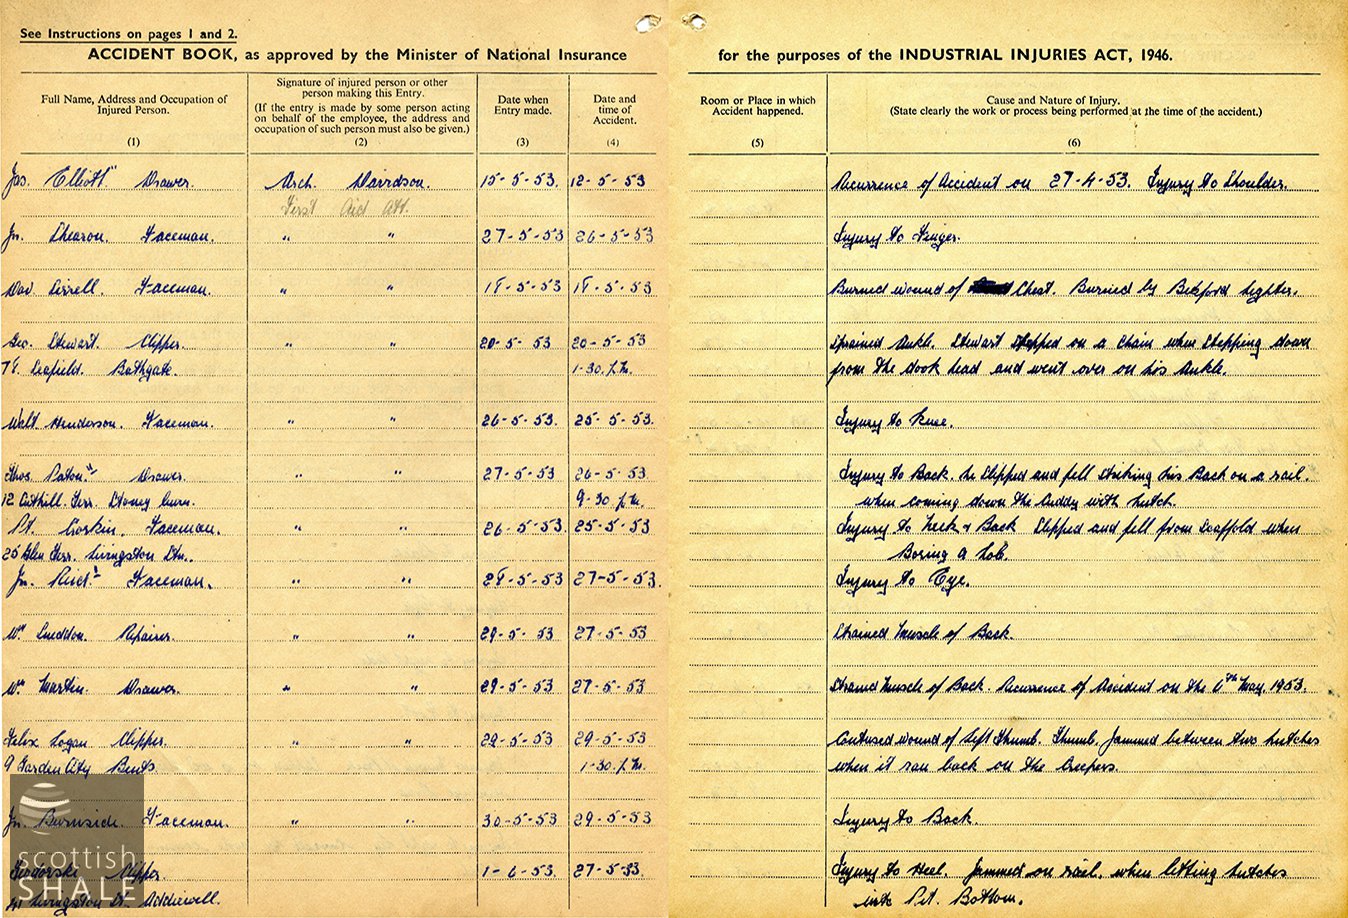 See Instructions on pages 1 and 2.
ACCIDENT BOOK, as approved by the Minister of National Insurance for the purposes of the INDUSTRIAL INJURIES ACT, 1946.
Full Name, Address and Occupation of Injured Person. (1)
Signature of injured person or other person making this Entry. (If the entry is made by some person acting on behalf of the employee, the address and occupation of such person must also be given.) (2)
Date when Entry made. (3)
Date and time of Accident. (4)
Room or Place in which Accident happened. (5)
Cause and Nature of Injury. (State clearly the work or process being performed at the time of the accident.) (6)
Jas. Elliott Drawer. Arch. Davidson. 15-5-53. 12-5-53 Recurrence of Accident on 27-4-53. Injury to Shoulder.
First Aid Att.
Jn. Shearon. Faceman. " " 27-5-53 26-5-53 Injury to Finger.
Dav. Faceman. " " 18-5-53 18-5-53 Burned wound of Chest. Burned by lighter.
Geo. Stewart. Clipper. " " 20-5-53 20-5-53 Sprained Ankle. Stewart Stepped on a Chain when Stepping down
Leafield. Bathgate. 1-30. p.m. from the dook head and went over on his Ankle.
Walt. Henderson. Faceman. " " 26-5-53. 25-5-53. Injury to Knee.
Thos. Paton. Drawer. " " 27-5-53 26-5-53 Injury to Back. He Slipped and fell Striking his Back on a rail.
12 Cuthill. Terr. Stoney burn. 9-30 p.m. when coming down the Cuddy with hutch.
Pt. Faceman. " " 26-5-53. 25-5-53 Injury to Neck & Back Slipped and fell from Scaffold when
25 Glen Terr. Livingston Stn.. Boring a hob.
Jn. Reid. Faceman. " " 28-5-53 27-5-53. Injury to Eye.
Wm Sneddon. Repairer. " " 29-5-53 27-5-53 Strained Muscle of Back.
Wm Martin. Drawer. " " 29-5-53. 27-5-53. Strained Muscle of Back. Recurrence of Accident on the 6th May. 1953.
Felix Logan Clipper. " " 29-5-53 29-5-53 Contused wound of left Thumb. Thumb. Jammed between two hutches
9 Garden City Bents. 1-30. p.m. when it ran back on the Creepers.
Jn. Burnside. Faceman. " " 30-5-53 29-5-53 Injury to Back.
Clipper 1-6-53. 27-5-53. Injury to Heel. Jammed on rail. when letting hutches
Livingston St. Addiewell. into Pit. Bottom.
scottish
SHALE